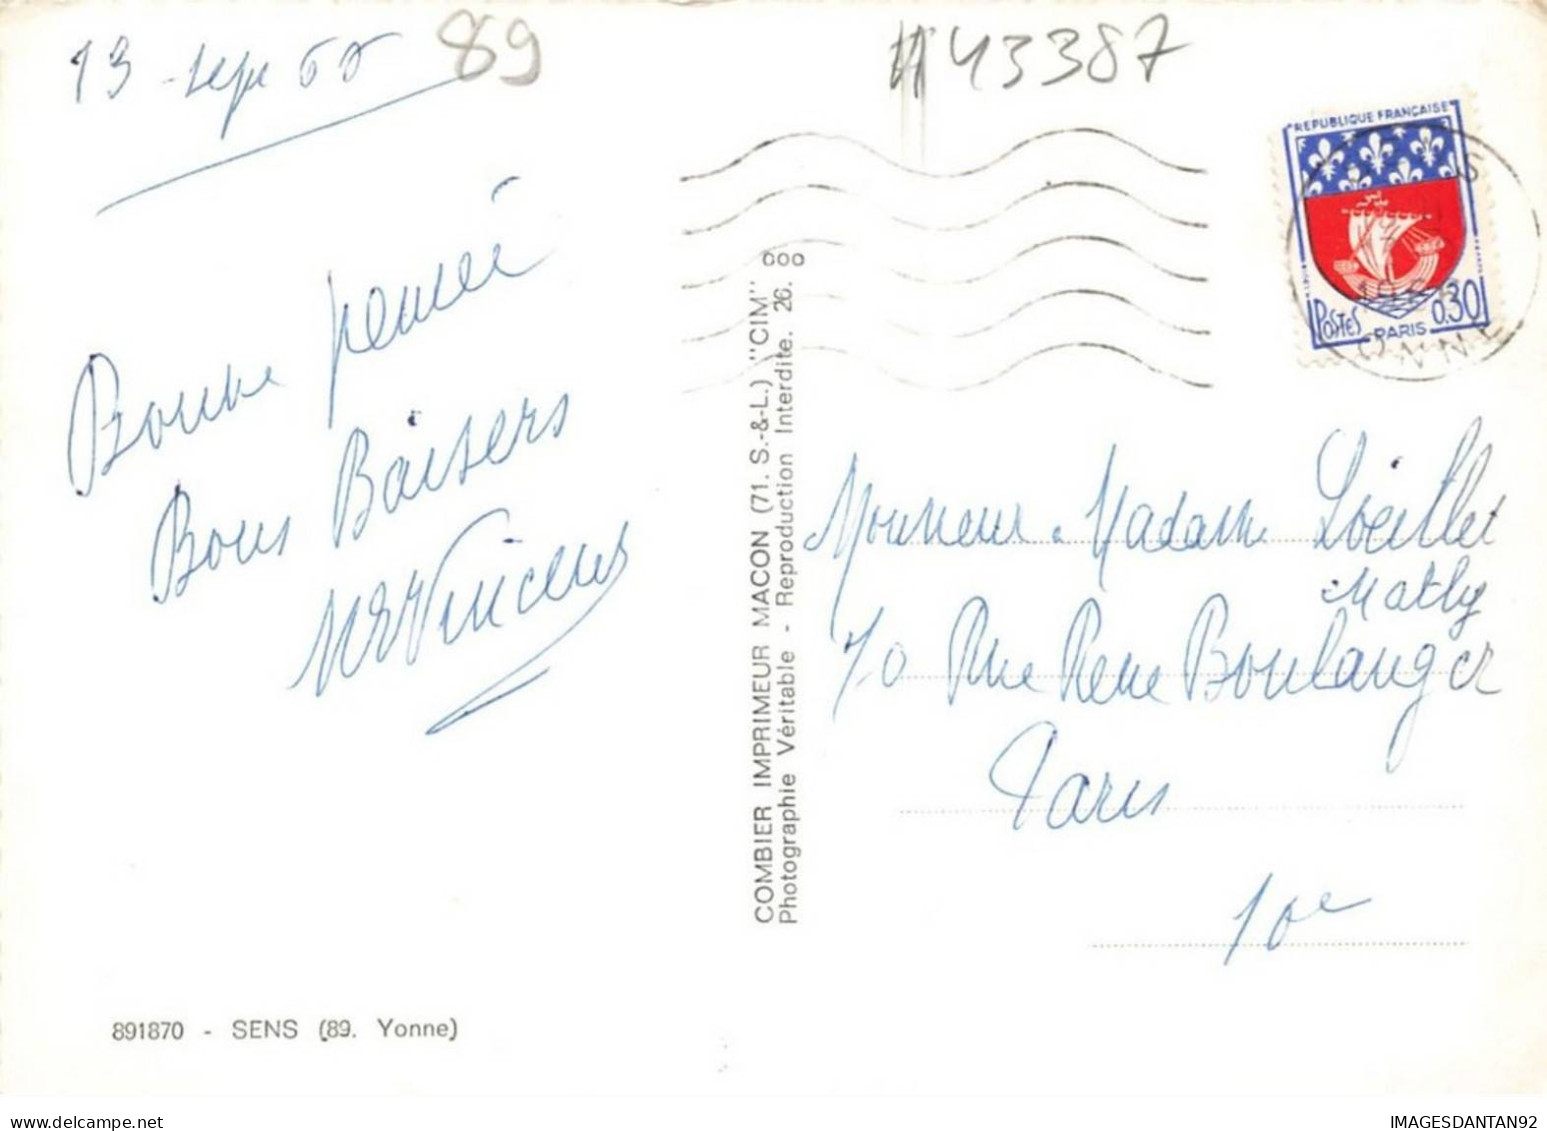 13 - sept 68 89
# 43387
REPUBLIQUE FRANÇAISE
POSTES PARIS 0,30
Bonne pensée
Bons Baisers
Vincent
COMBIER IMPRIMEUR MACON (71. S.-&-L.) "CIM"
Photographie Véritable - Reproduction Interdite. 26.
Monsieur & Madame Loeillet
Mathy
70 Rue Rene Boulanger
Paris
10e
891870 - SENS (89. Yonne)
IMAGESDANTAN92